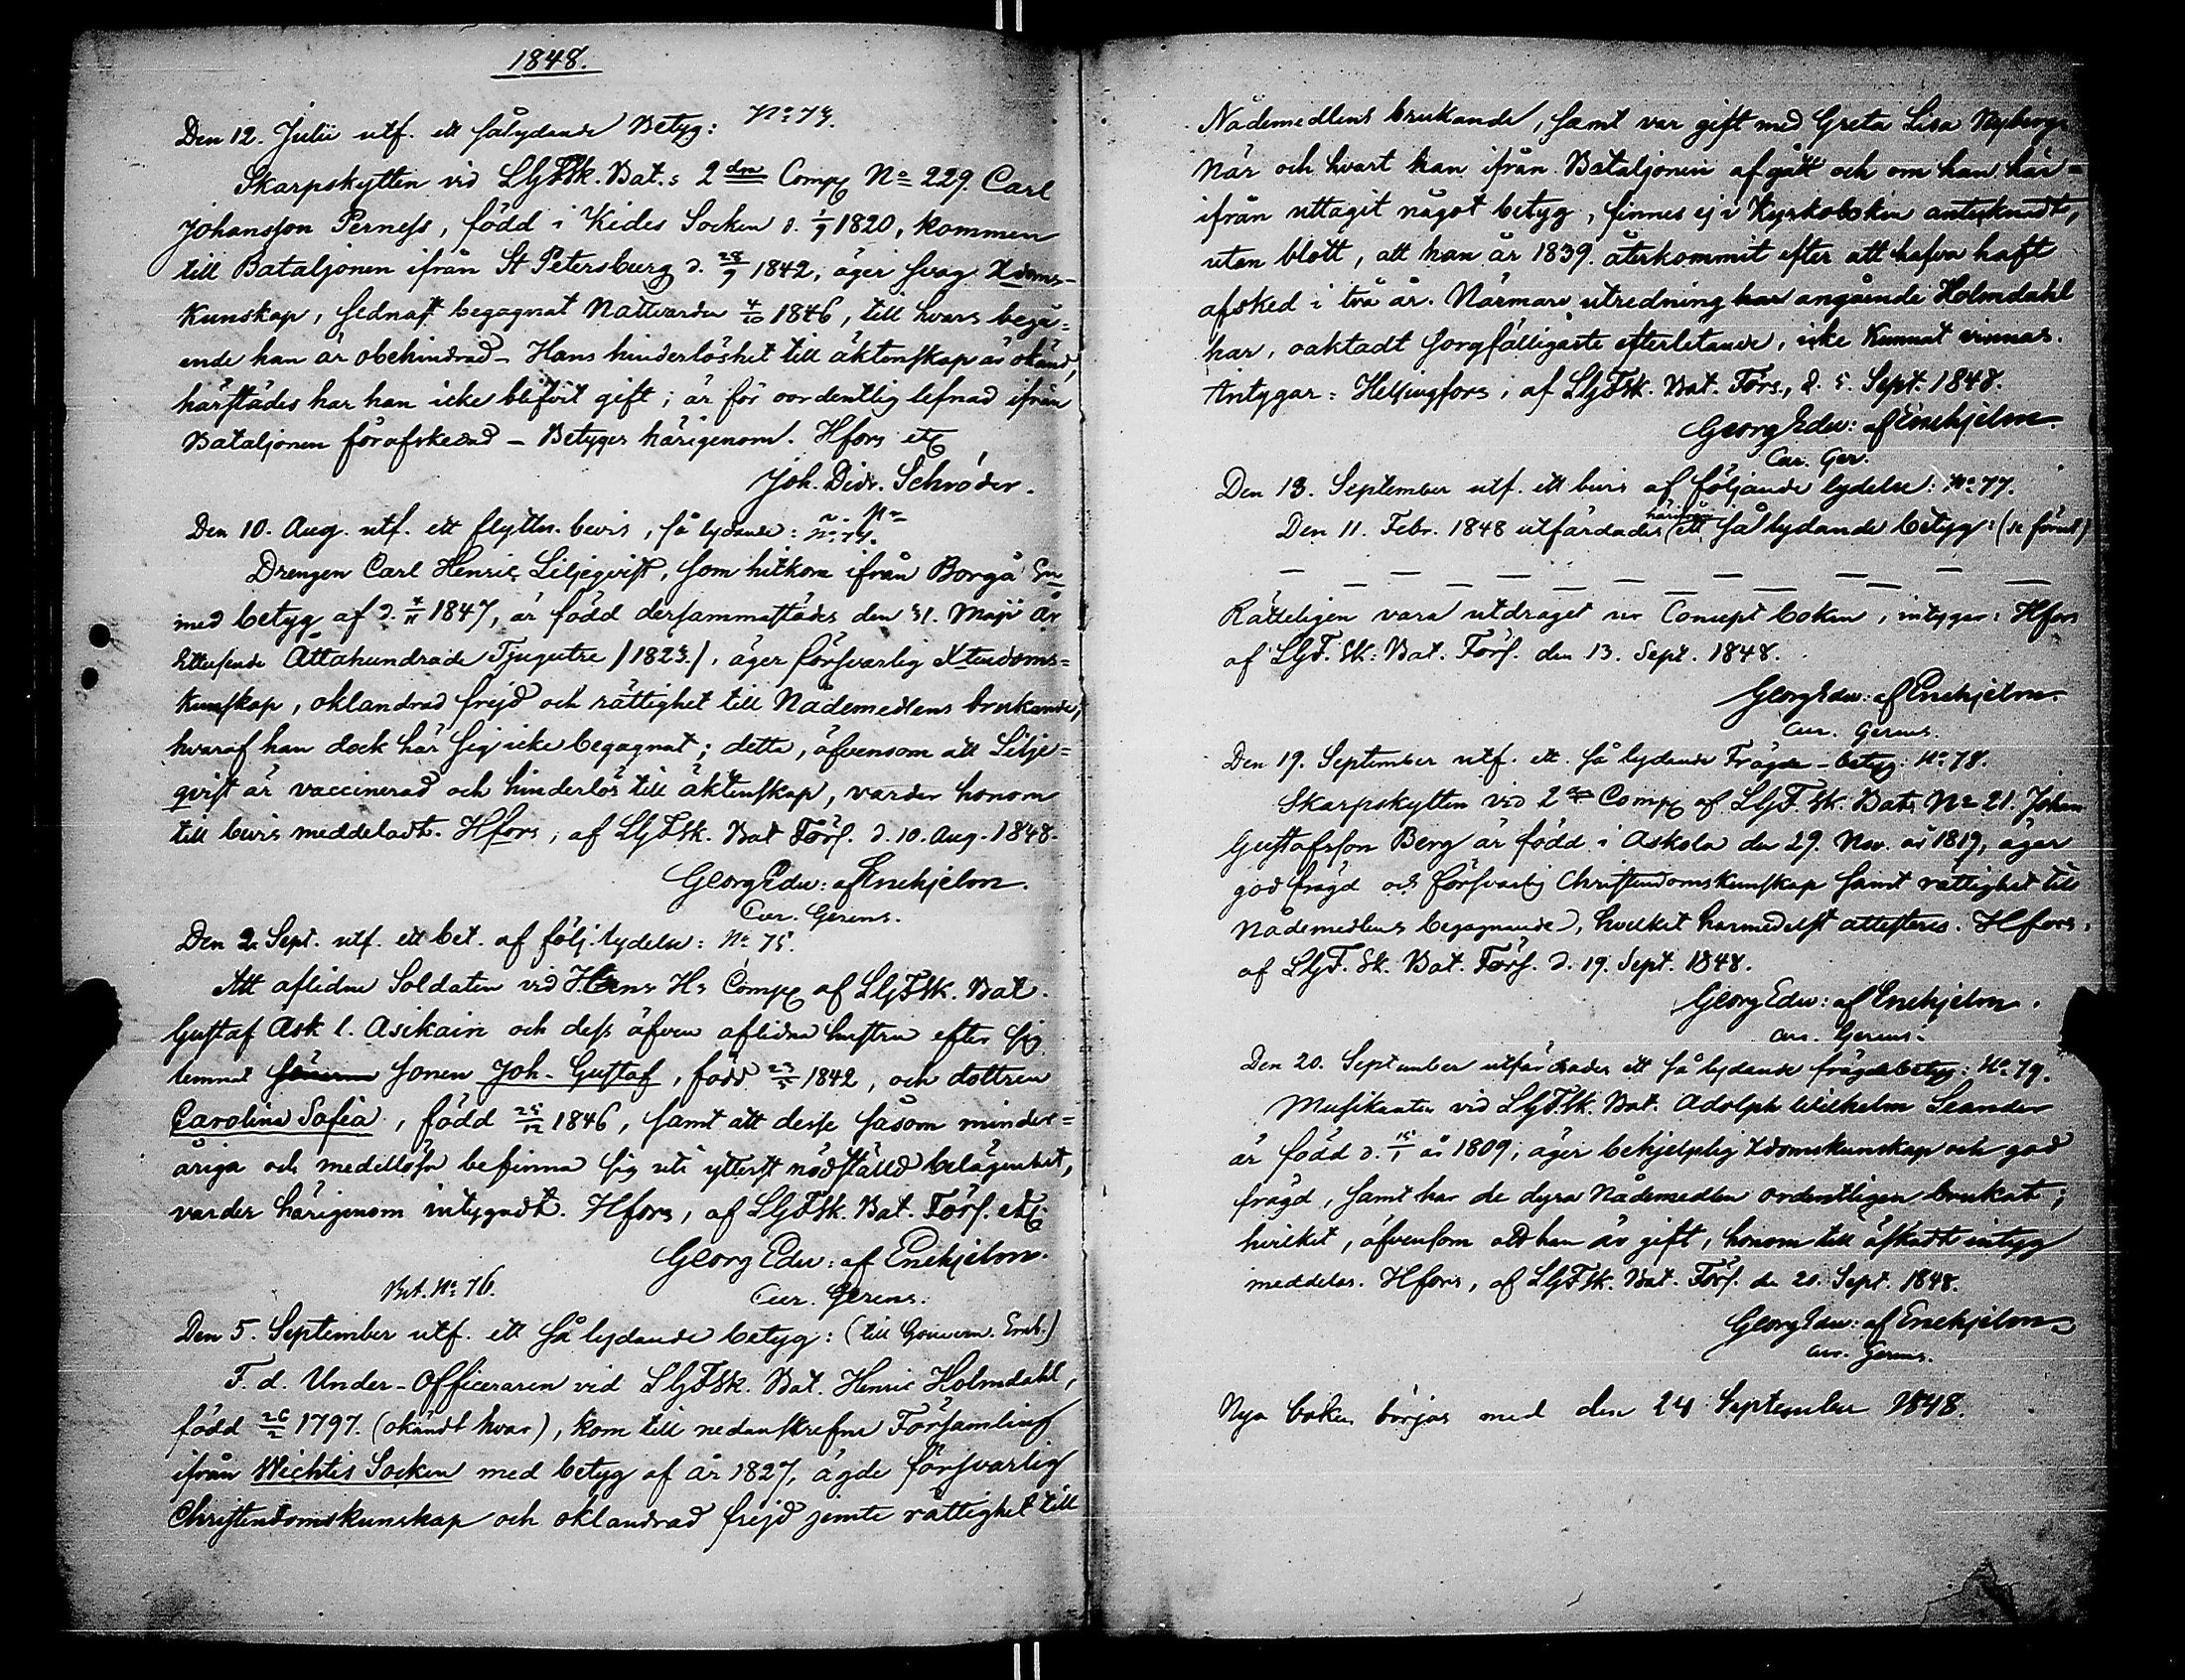 1848.
Den 12. Julii utf. ett sålydande Betyg: No 73.
Skarpskytten vid LGFSk. Bat.s 2dra Comp. No 229. Carl
Johansson Perness, född i Kides Socken d. 1/9 1820, kommen
till Bataljonen ifrån St Petersburg d. 28/9 1842, äger svag Xdoms-
kunskap, sednast begagnat Nattvarden 4/10 1846, till hvars begå=
ende han är obehindrad - Hans hinderlöshet till äktenskap är okänd,
härstädes har han icke blifvit gift; är för oordentlig lefnad ifrån
Bataljonen förafskedad - Betygas härigenom. Hfors etc
Joh. Didr. Schröder.
Den 10. Aug. utf. ett flyttn. bevis, så lydande: No 74.
Drengen Carl Henric Liljeqvist, som hitkom ifrån Borgå
med betyg af d. 4/11 1847, är född dersammastädes den 31. Maji år
Ettusende Åttahundrade Tjugutre /1823./, äger försvarlig Xtendoms=
kunskap, oklandrad frejd och rättighet till Nådemedlens brukande,
hvaraf han dock här sig icke begagnat; detta, äfvensom att Lilje=
qvist är vaccinerad och hinderlös till äktenskap, varder honom
till bevis meddeladt. Hfors, af LGFSk. Bat Förs. d. 10. Aug. 1848.
Georg Edv: af Enehjelm.
Cur. Gerens.
Den 2. Sept. utf. ett bet. af följ. lydelse: No 75.
Att aflidne Soldaten vid Hans H:s Comp af LGFSk. Bat.
Gustaf Ask l. Asikain och dess äfven aflidna hustru efter sig
lemnat sonen Joh. Gustaf, född 23/5 1842, och dottren
Carolina Sofia, född 25/12 1846, samt att desse såsom minder=
åriga och medellösa befinna sig uti ytterst nödställd belägenhet,
varder härigenom intygadt. Hfors, af LGFSk. Bat. Förs. etc.
Georg Edv: af Enehjelm.
Cur. Gerens.
Bet. No 76.
Den 5. September utf. ett så lydande betyg: (till Gouvern. Emb.)
F. d. Under-Officeraren vid LGFSk. Bat. Henric Holmdahl,
född 26/2 1797. (okändt hvar), kom till nedanskrefne Församling
ifrån Wichtis Socken med betyg af år 1827, ägde försvarlig
Christendomskunskap och oklandrad frejd jemte rättighet till
Nådemedlens brukande, samt var gift med Greta Lisa Nyberg.
När och hvart han ifrån Bataljonen afgått och om han här=
ifrån uttagit något betyg, finnes ej i Kyrkoboken antecknadt,
utan blott, att han år 1839. återkommit efter att hafva haft
afsked i två år. Närmare utredning angående Holmdahl
har, oaktadt sorgfälligaste efterletande, icke kunnat vinnas.
Intygar: Helsingfors, af LGFSk. Bat. Förs., d. 5. Sept. 1848.
Georg Edv: af Enehjelm.
Cur. Ger.
Den 13. September utf. ett bevis af följande lydelse: No 77.
Den 11. Febr. 1848 utfärdades härifrån ett så lydande betyg: (se förut)
— — — — — — — — — — — —
Rätteligen vara utdraget ur Concept boken, intygar: Hfors
af LGF. Sk: Bat. Förs. den 13. Sept. 1848.
Georg Edv: af Enehjelm.
Cur. Gerens.
Den 19. September utf. ett så lydande Frägde-betyg: No 78.
Skarpskytten vid 2dra Comp af LGF. Sk. Bat. No 21. Johan
Gustafsson Berg är född i Askola den 29. Nov. år 1819, äger
god frägd och försvarlig Christendomskunskap samt rättighet till
Nådemedlens begagnande, hvilket härmedelst attesteras. Hfors,
af LGF. Sk. Bat. Förs. d. 19. Sept. 1848.
Georg Edv: af Enehjelm.
Cur. Gerens.
Den 20. September utfärdades ett så lydande frägdebetyg: No 79.
Musikanten vid LGFSk. Bat. Adolph Wilhelm Seander
är född d. 15/1 år 1809, äger behjelplig Xdomskunskap och god
frägd, samt har de dyra Nådemedlen ordentligen brukat;
hvilket, äfvensom att han är gift, honom till äskadt intyg
meddelas. Hfors, af LGFSk. Bat. Förs. d. 20. Sept. 1848.
Georg Edv: af Enehjelm.
Cur. Gerens.
Nya boken börjas med den 24 September 1848.